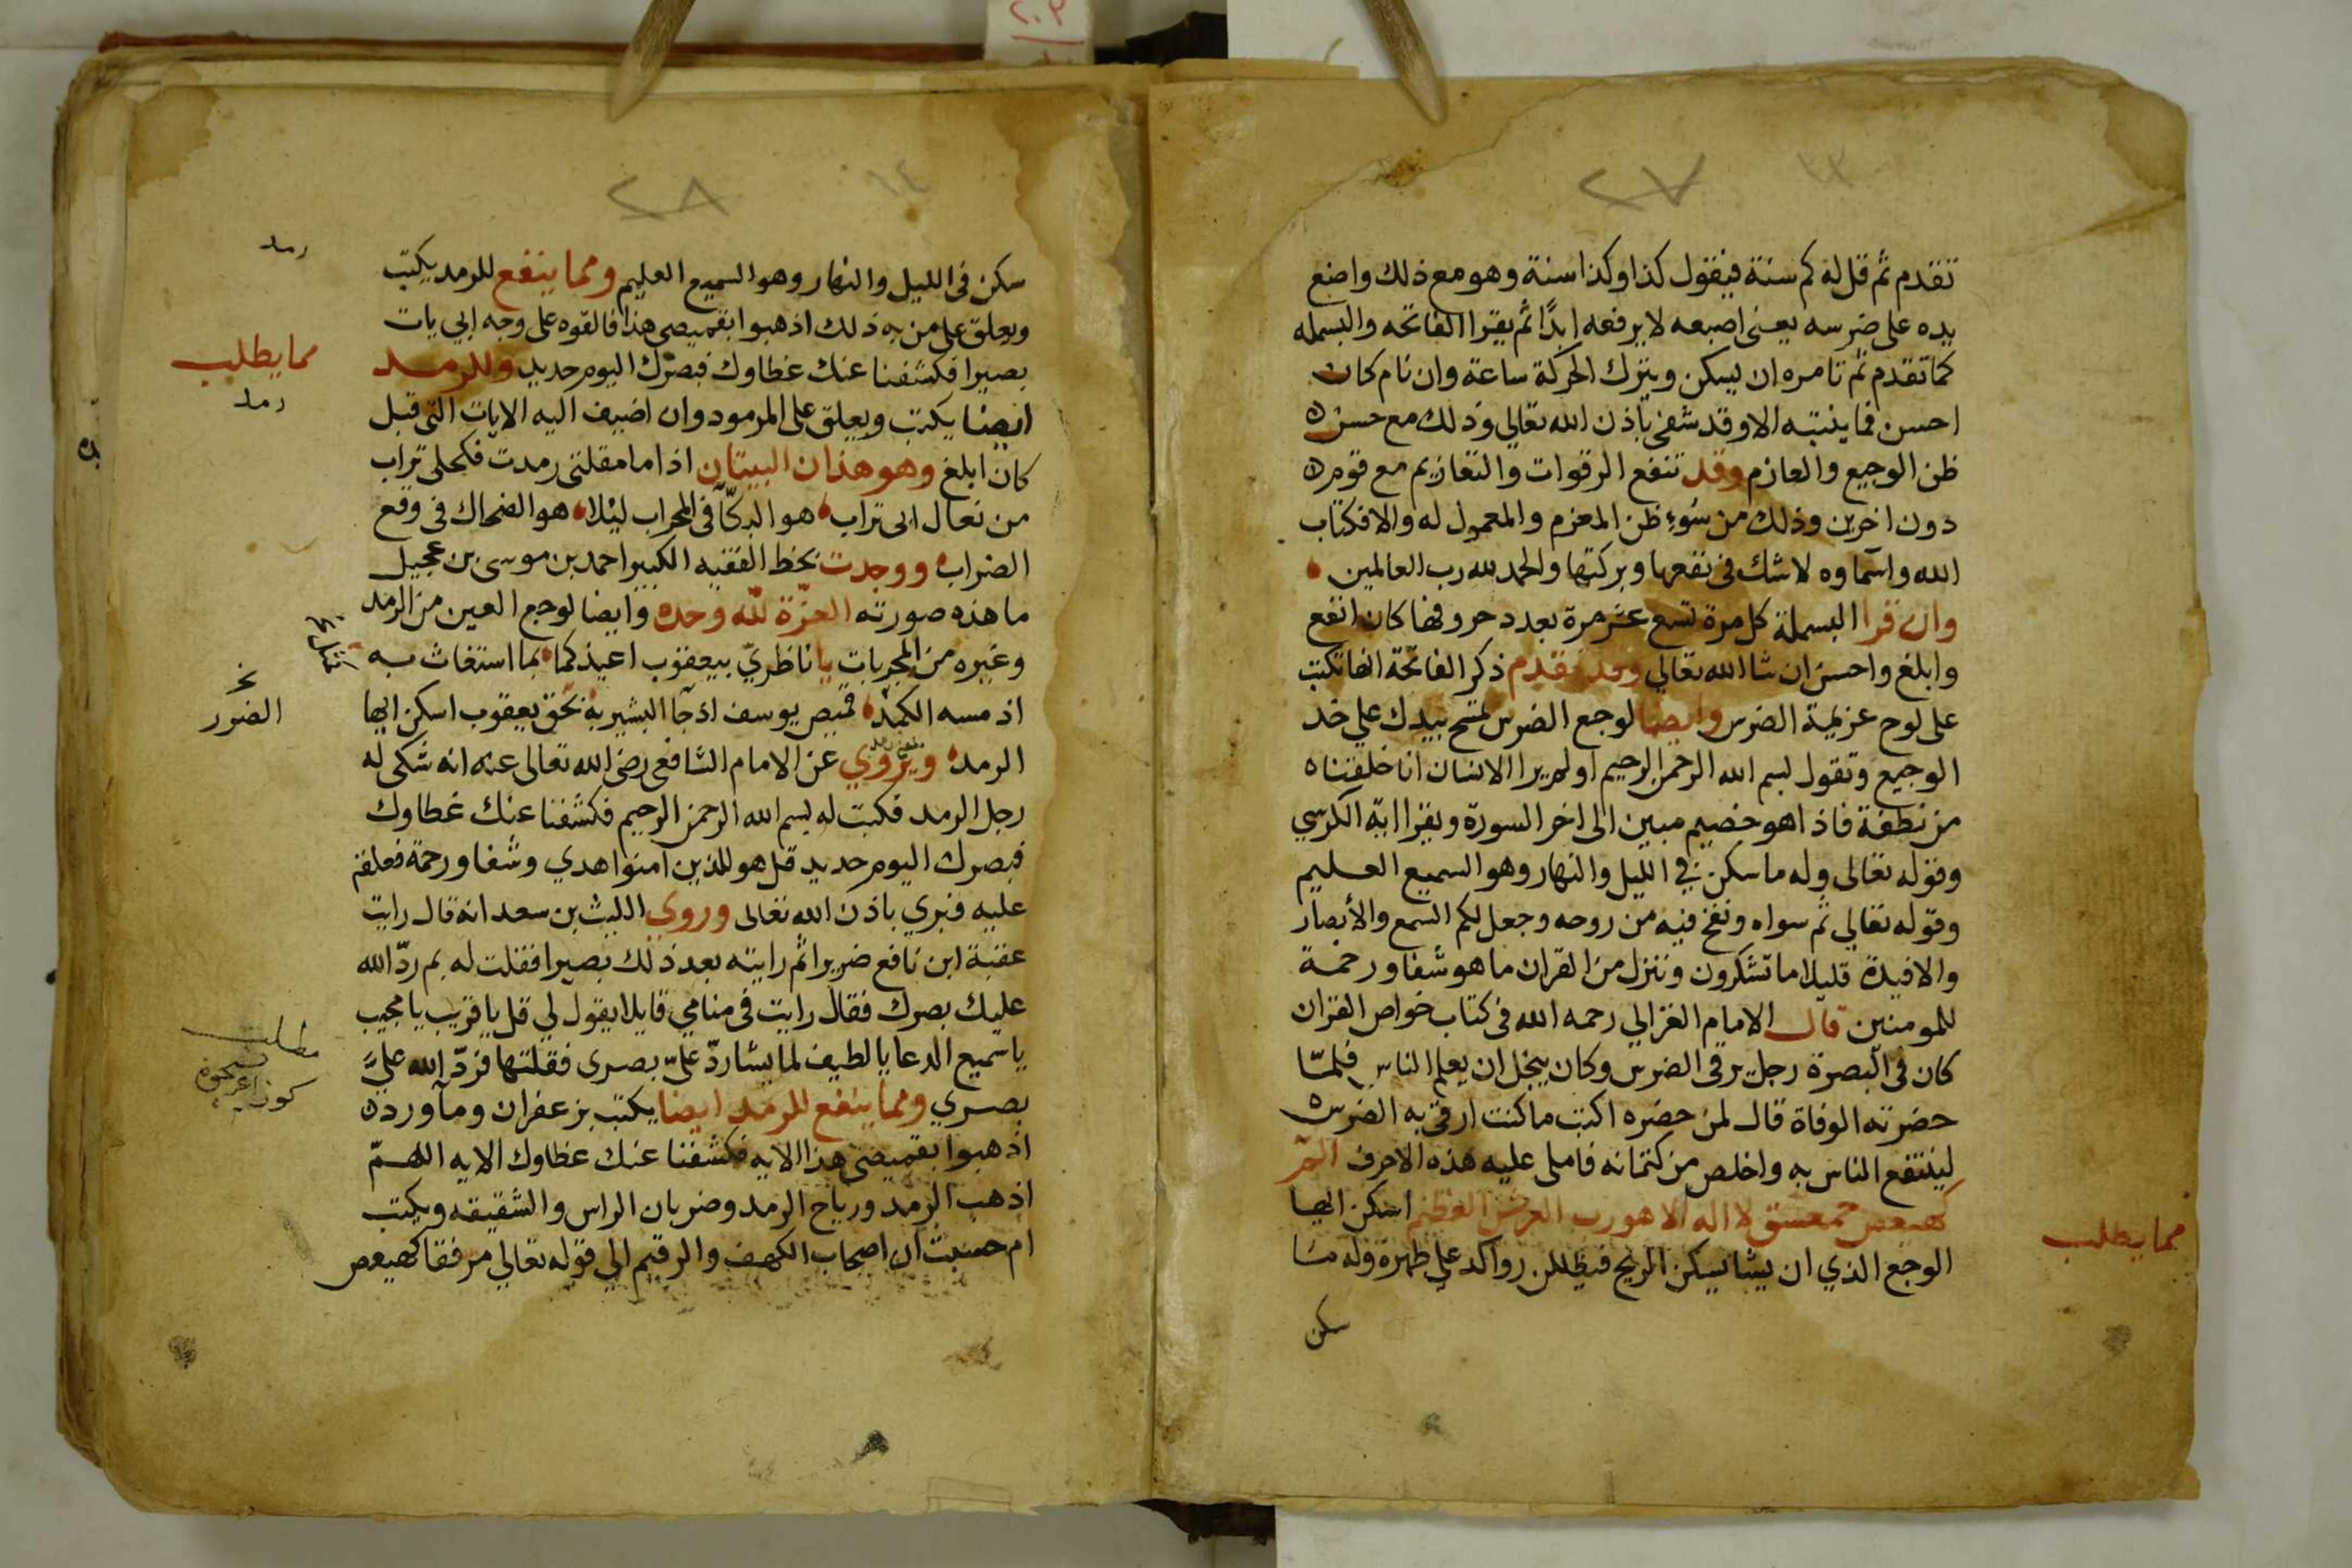 ٢٧
تقدم ثم قل له كم سنة فيقول كذا وكذا سنة وهو مع ذلك واضع
يده على ضرسه يعنى اصبعه لا يرفعه ابدًا ثم يقرا الفاتحه والبسمله
كما تقدم ثم تامره ان يسكن ويترك الحركة ساعة وان نام كان
احسن فما ينتبه الا وقد شفى باذن الله تعالي وذلك مع حسن
ظن الوجيع والعازم وقد تنفع الرقوات والتعازيم مع قوم
دون اخرين وذلك من سُوءِ ظن المعزم والمعمول له والا فكتاب
الله واسماوه لا شك فى نفعها وبركتها والحمد لله رب العالمين
وان قرا البسملة كل مرة تسع عشر مرة بعدد حروفها كان انفع
وابلغ واحسن ان شا الله تعالي وقد تقدم ذكر الفاتحة انها تكتب
على لوح عزيمة الضرس وايضا لوجع الضرس تمسح بيدك علي خد
الوجيع وتقول بسم الله الرحمن الرحيم اولم ير الانسان انا خلقناه
من نطفة فاذا هو خصيم مبين الى اخر السورة وتقرا اية الكرسي
وقوله تعالى وله ما سكن في الليل والنهار وهو السميع العليم
وقوله تعالي ثم سواه ونفخ فيه من روحه وجعل لكم السمع والأبصار
والافيدة قليلا ما تشكرون وننزل من القران ما هو شفا ورحمة
للمومنين قال الامام الغزالي رحمه الله فى كتاب خواص القران
كان فى البصرة رجل يرقى الضرس وكان يبخل ان يعلم الناس فلمّا
حضرته الوفاة قال لمن حضره اكتب ما كنت ارقى به الضرس
لينتفع الناس به واخلص من كتمانه فاملى عليه هذه الاحرف المر
كهيعص حمعسق لا اله الا هو رب العرش العظيم اسكن ايها
الوجع الذي ان يشا يسكن الريح فيظللن رواكد علي ظهره وله ما
سكن
مما يطلب
٢٨
سكن فى الليل والنهار وهو السميع العليم ومما ينفع للرمد يكتب
ويعلق على من به ذلك اذهبوا بقميصى هذا فالقوه على وجه ابي يات
بصيرا فكشفنا عنك غطاوك فبصرك اليوم حديد وللرمد
ايضا يكتب ويعلق على المرمود وان اضيف اليه الايات التى قبل
كان ابلغ وهو هذان البيتان اذا ما مقلتى رمدت فكحلى تراب
من نعال ابى تراب هو البكّا فى المحراب ليلا هو الضحاك فى وقع
الضراب ووجدت بخط الفقيه الكبير احمد بن موسى بن عجيل
ما هذه صورته العزّة لله وحده وايضا لوجع العين من الرمد
وغيره من المجربات يا ناظريّ بيعقوب اعيذكما بما استغاث به
اذ مسه الكمد قميص يوسف اذ جا البشير به بحق يعقوب اسكن ايها
الرمد ويروي عن الامام الشافعى رضى الله تعالى عنه انه شكى له
رجل الرمد فكتب له بسم الله الرحمن الرحيم فكشفنا عنك غطاوك
فبصرك اليوم حديد قل هو للذين امنوا هدي وشفا ورحمة فعلقه
عليه فبري باذن الله تعالى وروى الليث بن سعد انه قال رايت
عقبة ابن نافع ضريرا ثم رايته بعد ذلك بصيرا فقلت له بم ردّ الله
عليك بصرك فقال رايت فى منامي قايلا يقول لي قل يا قريب يا مجيب
يا سميع الدعا يا لطيف لما يشا ردّ عليّ بصرى فقلتها فردّ الله عليّ
بصري ومما ينفع للرمد ايضا يكتب بزعفران وماورد
اذهبوا بقميصى هذا الايه فكشفنا عنك غطاوك الايه اللهمّ
اذهب الرمد ورياح الرمد وضربان الراس والشقيقه ويكتب
ام حسبت ان اصحاب الكهف والرقيم الي قوله تعالي مرفقا كهيعص
رمد
مما يطلب
رمد
الضرر
مطلب